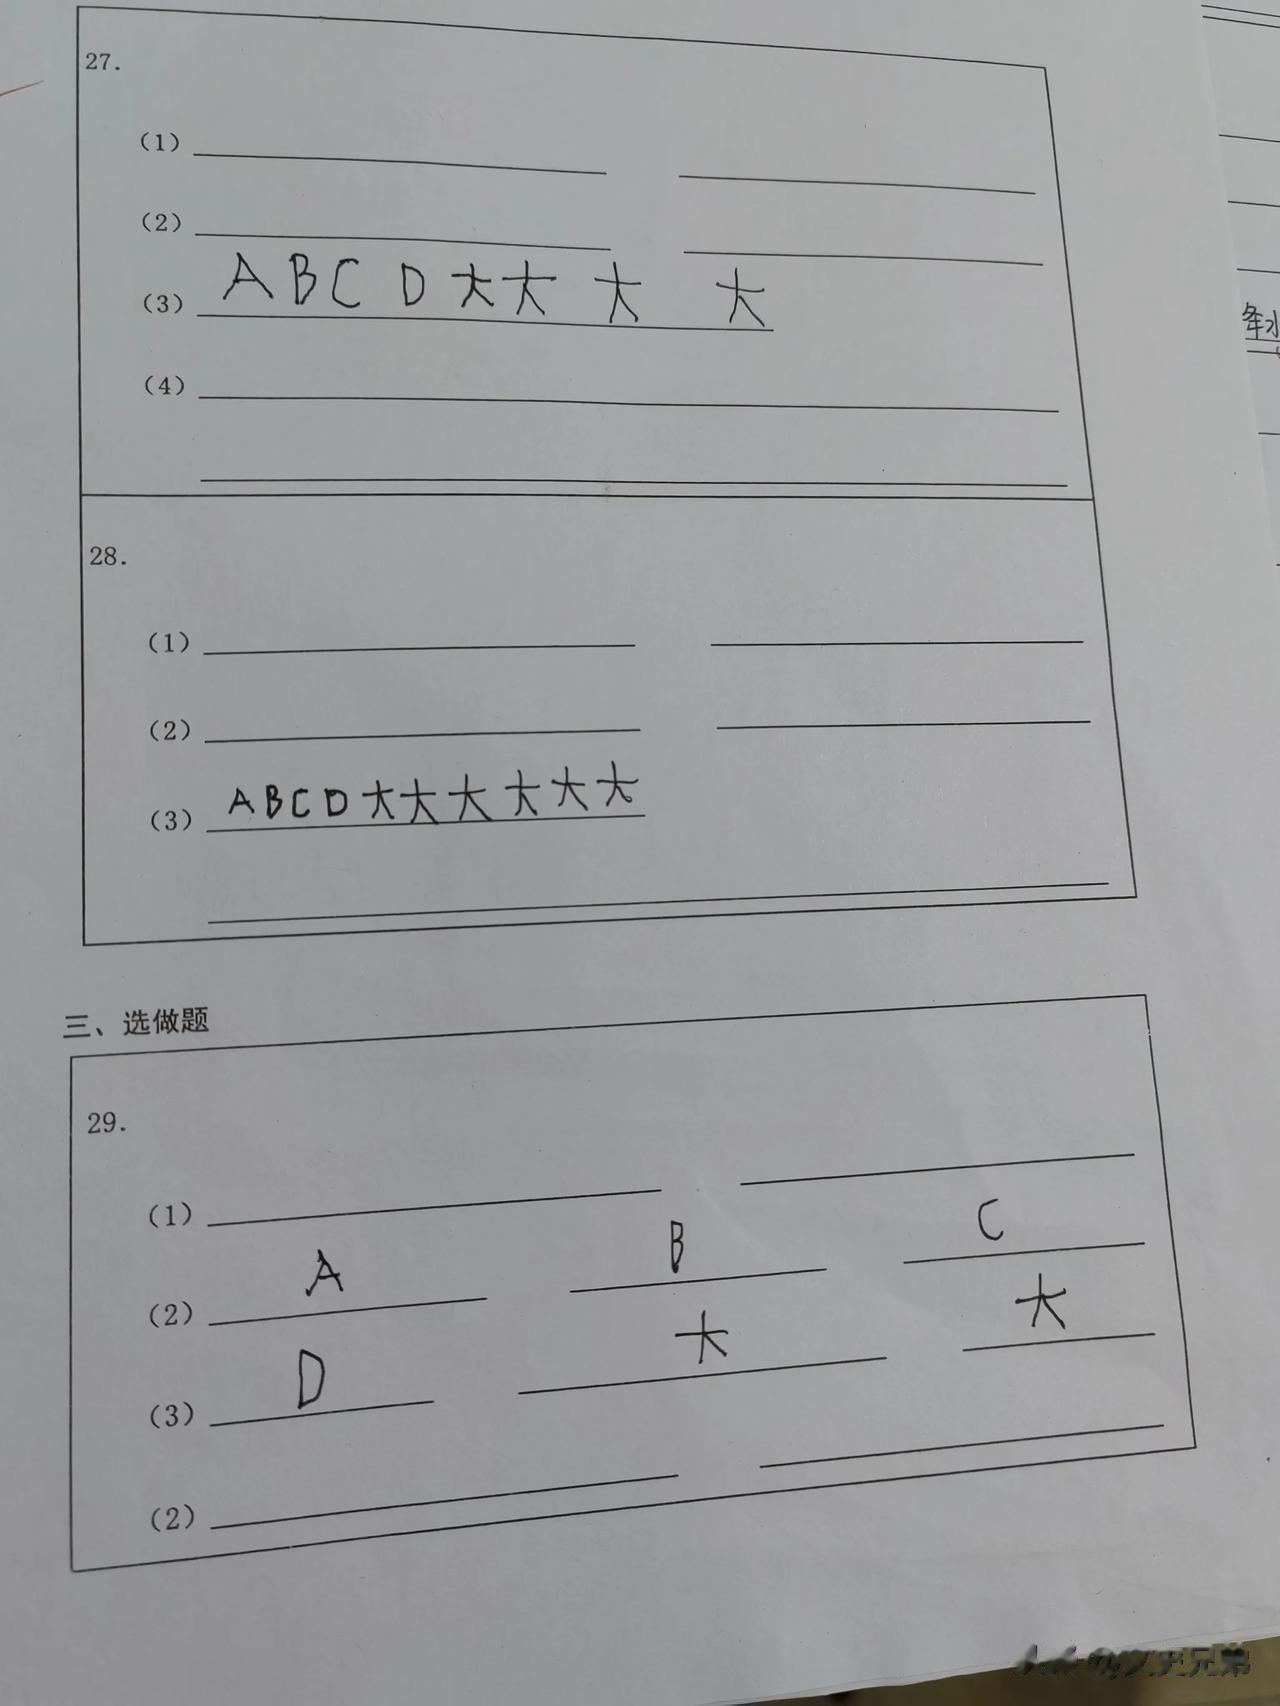 27.
(1)
(2)
(3) A B C D 大 大 大 大
(4)
28.
(1)
(2)
(3) A B C D 大 大 大 大 大 大
三、选做题
29.
(1)
(2) A B C
(3) D 大 大
(2)
文史兄弟